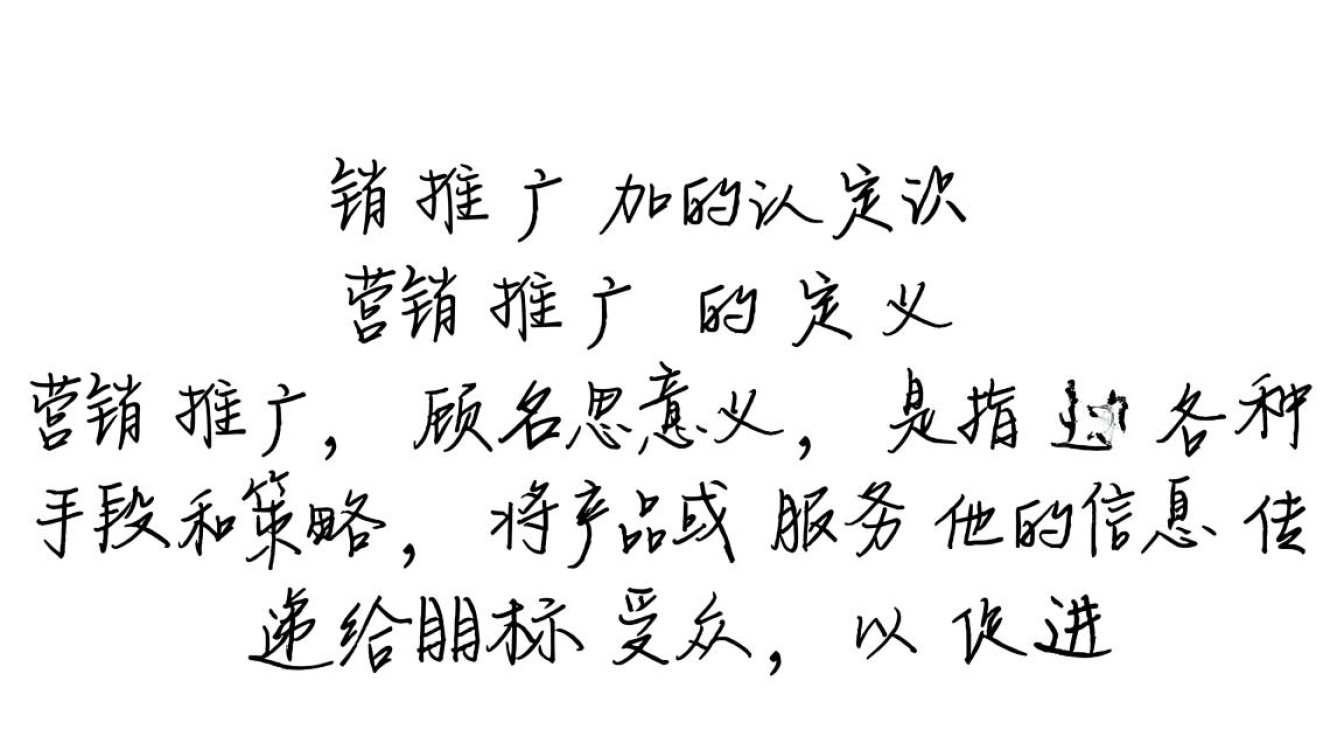 销推广加的认定识
营销推广的定义
营销推广，顾名思意义，是指各种
手段和策略，将产品或服务他的信息传
递给朋标受众，以促进